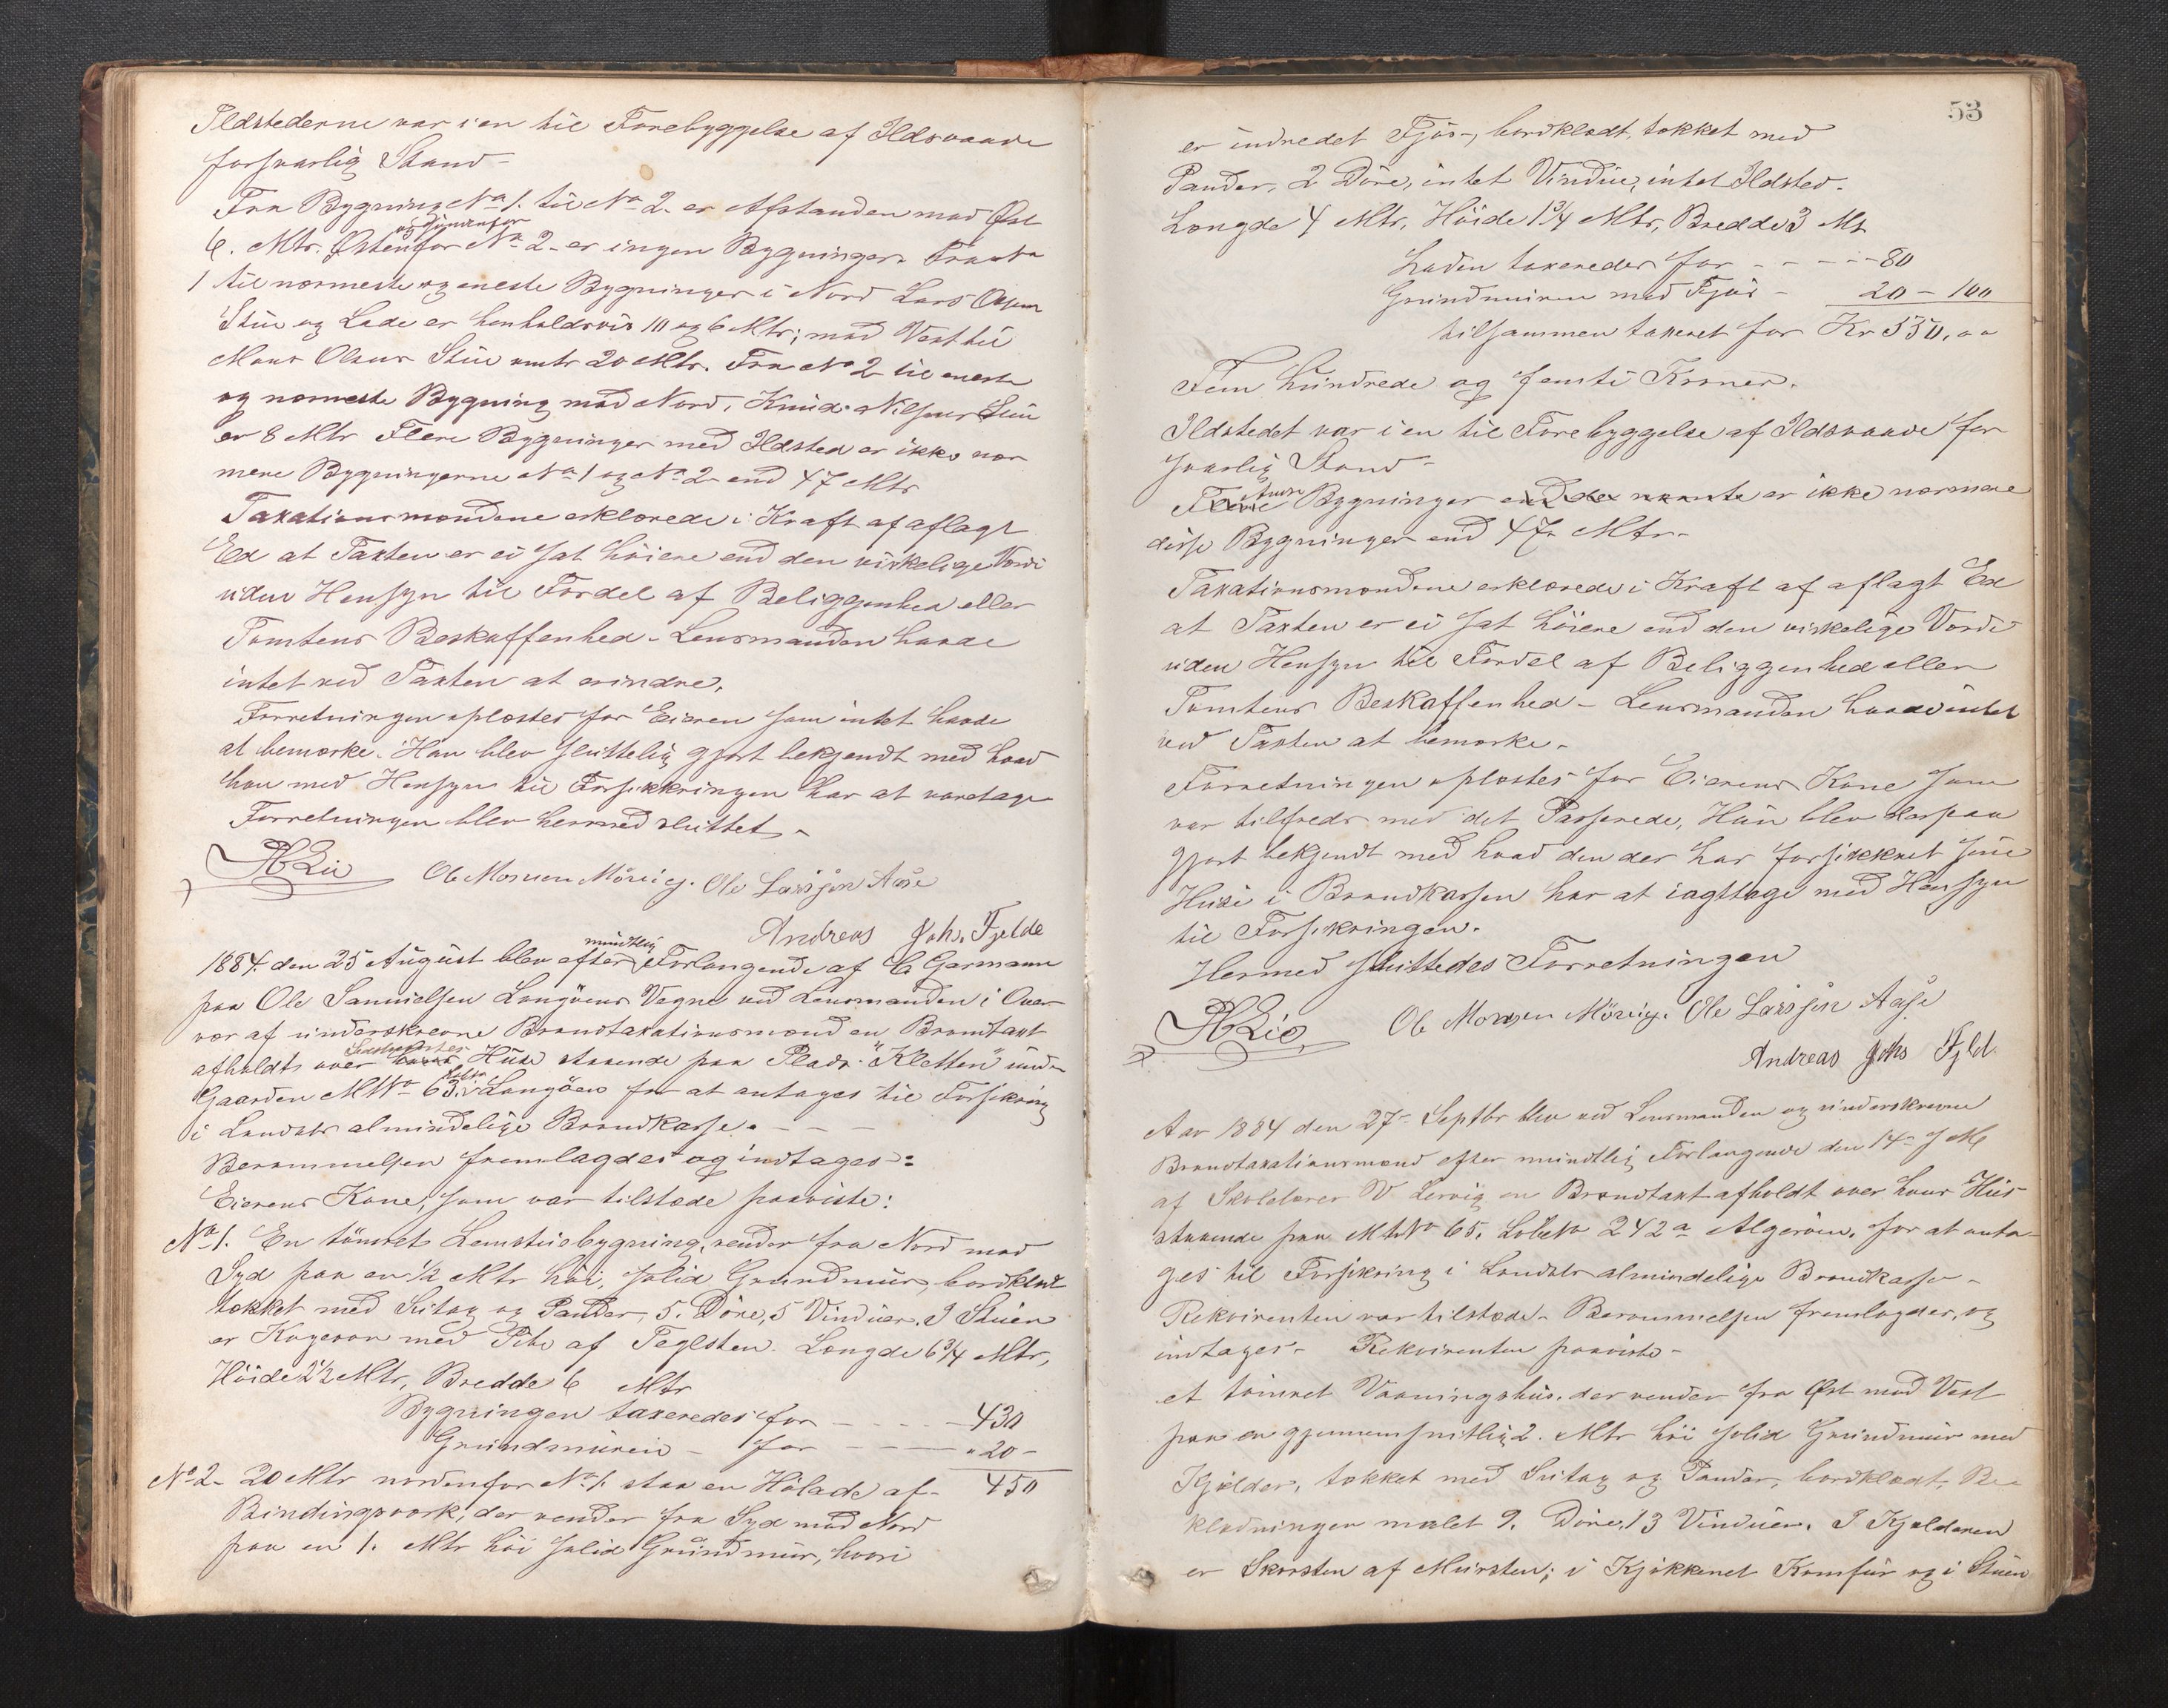 Ildstederne var i en til Forebyggelse af Ildsvaade
forsvarlig Stand -
Fra Bygning No 1. til No 2. er Afstanden mod Øst
og søndenfor
6. Mtr. Østenfor No 2. er ingen Bygninger. Fra No
1 til nærmeste og eneste Bygninger i Nord Lars Olsens
Stue og Lade er henholdsvis 10 og 6 Mtr; mod Vest til
Mons Olsens Stue omtr 20 Mtr. Fra No 2 til eneste
og nærmeste Bygning mod Nord, Knud Nilsens Stue
er 8 Mtr Flere Bygninger med Ildsted er ikke nær
mere Bygningerne No 1 og No 2 end 47 Mtr
Taxationsmændene erklærede i Kraft af aflagt
Ed at Taxten er ei sat höiere end den virkelige Værdi
uden Hensyn til Fordel af Beliggenhed eller
Tomtens Beskaffenhed - Lensmanden havde
intet ved Taxten at erindre.
Forretningen oplæstes for Eieren som intet havde
at bemærke. Han blev sluttelig gjort bekjendt med hvad
han med Hensyn til Forsikkringen har at varetage
Forretningen blev hermed sluttet -
Ole Monsen Mövig. Ole Larsjen Aase
Andreas Joh. Fjelde
mundtlig
1884. den 25 August blev efter Forlangende af C Garmann
paa Ole Samuelsen Langöens Vegne ved Lensmanden i Over-
vær af underskrevne Brandtaxationsmænd en Brandtaxt
afholdt over Huse staaende paa Plads "Kletten" under
Gaarden MtNo 63. i Langöen for at antages til Forsikring
i Landets almindelige Brandkasse. - - -
Berammelsen fremlagdes og indtages:
Eierens Kone, som var tilstæde paaviste:
No 1. En tömret Lemstuebygning, vender fra Nord mod
Syd paa en 1/2 Mtr höi, solid Grundmur, bordklædt
tækket med Sutag og Pander, 5. Döre, 5 Vinduer. I Stuen
er Kogeovn med Pibe af Teglsten. Længde 6 3/4 Mtr,
Höide 2 1/2 Mtr, Bredde 6 Mtr
Bygningen taxeredes for - - - - 430
Grundmuren - for - - - " 20 -
450
No 2. 20 Mtr nordenfor No 1. staar en Hölade af
Bindingsværk, der vender fra Syd mod Nord
paa en 1. Mtr höi solid Grundmur, hvori
53
er indredet Fjös, bordklædt, tækket med
Pander, 2 Döre, intet Vindue, intet Ildsted.
Længde 4 Mtr, Höide 1 3/4 Mtr, Bredde 3 Mtr
Laden taxeredes for - - - - - 80
Grundmuren med Fjös - 20 - 100
tilsammen taxeret for Kr 550,00
Fem hundrede og femti Kroner.
Ildstedet var i en til Forebyggelse af Ildsvaade for
svarlig Stand -
Andre
Flere Bygninger end de nævnte er ikke nærmere
disse Bygninger end 47. Mtr.
Taxationsmændene erklærede i Kraft af aflagt Ed
at Taxten er ei sat höiere end den virkelige Værdi
uden Hensyn til Fordel af Beliggenhed eller
Tomtens Beskaffenhed - Lensmanden havde intet
ved Taxten at bemærke.
Forretningen oplæstes for Eierens Kone som
var tilfreds med det Passerede, Hun blev derpaa
gjort bekjendt med hvad den der har forsikkret sine
Huse i Brandkassen har at iagttage med Hensyn
til Forsikringen.
Hermed sluttedes Forretningen
Ole Monsen Mövig. Ole Larsjen Aase
Andreas Johs Fjeld.
Aar 1884 den 27. Septbr blev ved Lensmanden og underskrevne
Brandtaxationsmænd efter mundtlig Forlangende den 14. s M
af Skolelærer W Lervig en Brandtaxt afholdt over hans Hus
staaende paa MtNo 65. LöbeNo 242a Algeröen, for at anta-
ges til Forsikring i Landets almindelige Brandkasse -
Rekvirenten var tilstæde. Berammelsen fremlagdes, og
indtages. Rekvirenten paaviste -
et tömret Vaaningshus, der vender fra Øst mod Vest
paa en gjennemsnitlig 2. Mtr höi solid Grundmur med
Kjelder, tækket med Sutag og Pander, bordklædt, Be-
klædningen malet 9. Döre, 13 Vinduer. I Kjelderen
er Skorsten af Mursten; i Kjökkenet Komfur og i Stuen